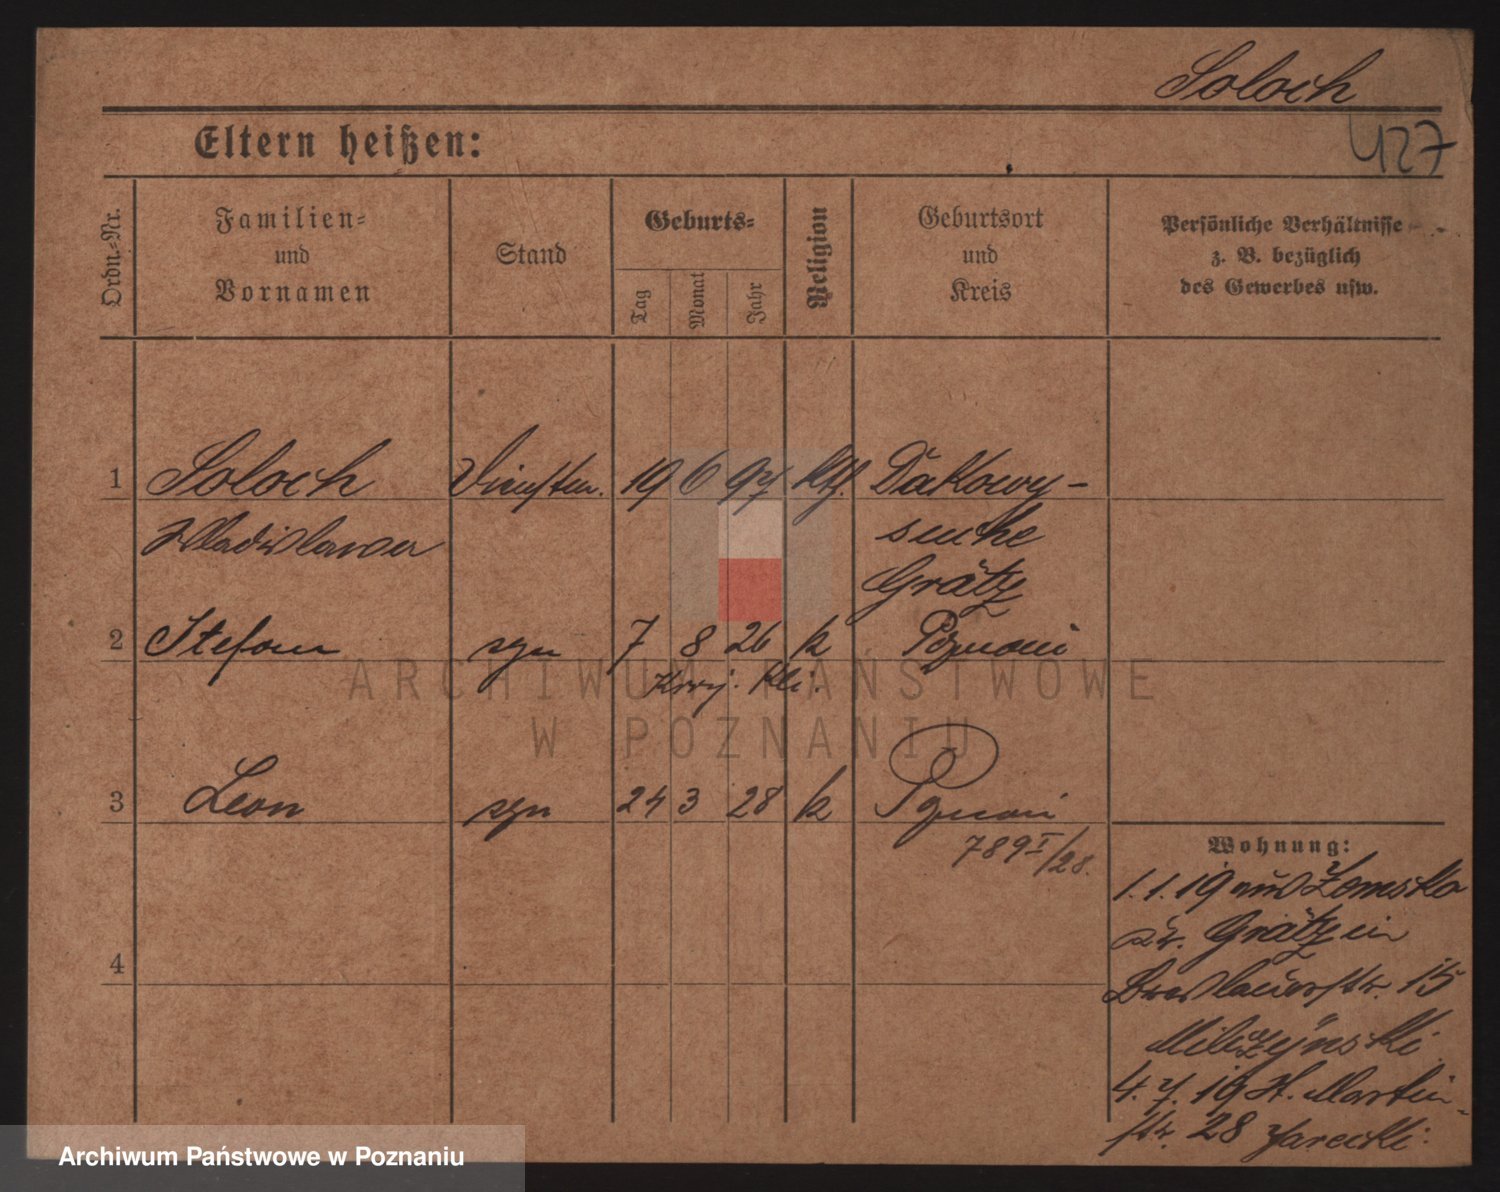 Soloch
427
Eltern heißen:
Ordn.=Nr.
Familien=
und
Vornamen
Stand
Geburts=
Tag
Monat
Jahr
Religion
Geburtsort
und
Kreis
Persönliche Verhältnisse
z. B. bezüglich
des Gewerbes usw.
1 Soloch 19 6 97 kth. Dakowy-
Wladislawa suche
Grätz
2 Stefan syn 7 8 26 k Poznań
3 Leon syn 24 3 28 k Poznań
789 I/28.
4
Wohnung:
1.1.19 aus
Grätz in
Breslauerstr. 15
4.7.19 St. Martin-
str. 28 Jarecki
ARCHIWUM PAŃSTWOWE
W POZNANIU
Archiwum Państwowe w Poznaniu